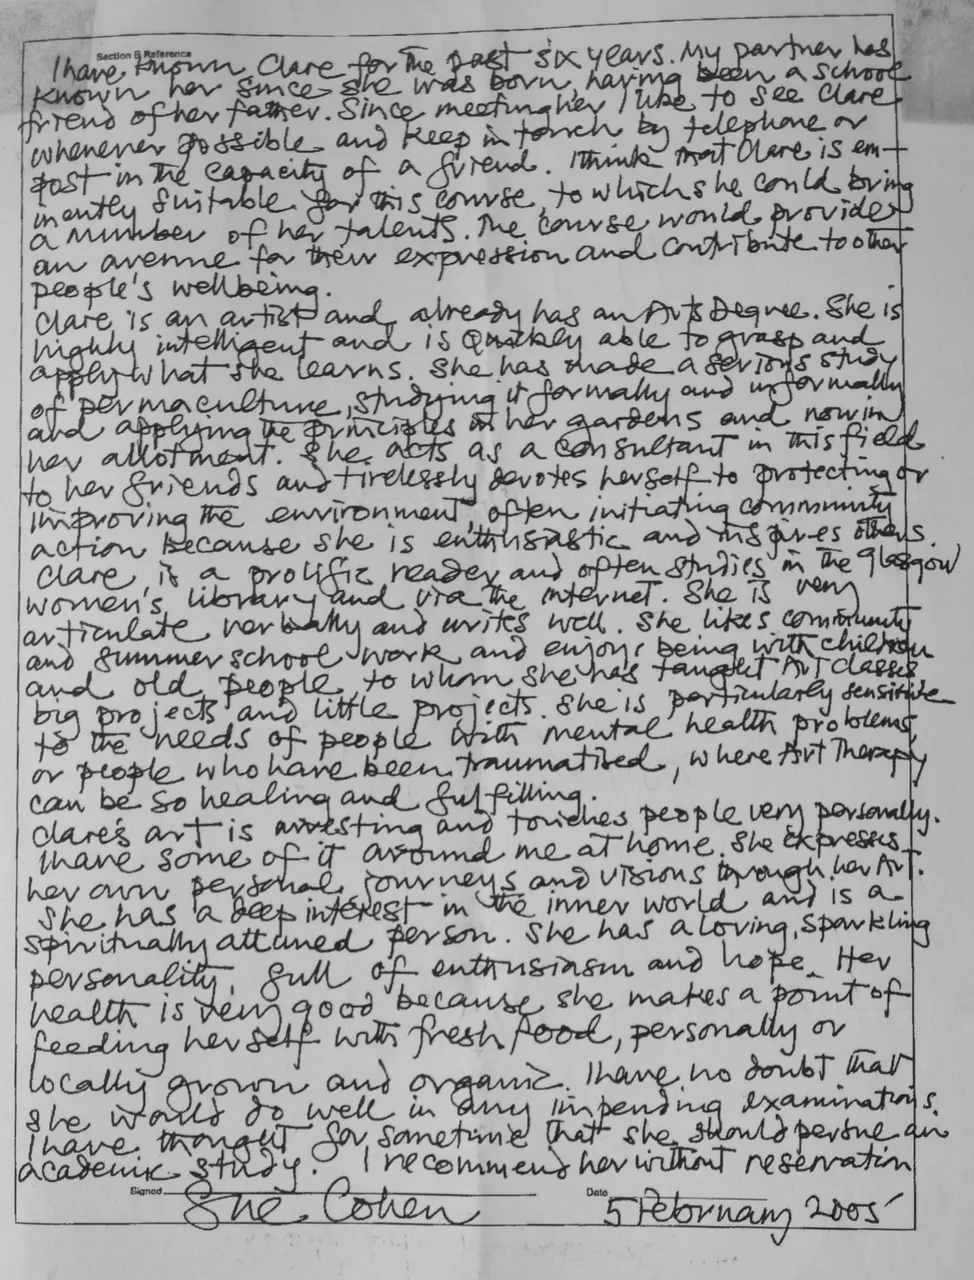 Section B Reference
I have known Clare for the past six years. My partner has
known her since she was born, having been a school
friend of her father. Since meeting her I like to see Clare
whenever possible and keep in touch by telephone or
post in the capacity of a friend. I think that Clare is em-
inently suitable for this course, to which she could bring
a number of her talents. The course would provide
an avenue for their expression and contribute to other
people's wellbeing.
Clare is an artist and already has an Arts Degree. She is
highly intelligent and is quickly able to grasp and
apply what she learns. She has made a serious study
of permaculture, studying it formally and informally
and applying the principles in her gardens and now in
her allotment. She acts as a consultant in this field
to her friends and tirelessly devotes herself to protecting or
improving the environment, often initiating community
action because she is enthusiastic and inspires others.
Clare is a prolific reader and often studies in the Glasgow
women's library and via the internet. She is very
articulate verbally and writes well. She likes community
and summer school work and enjoys being with children
and old people, to whom she has taught Art Classes
big projects and little projects. She is particularly sensitive
to the needs of people with mental health problems,
or people who have been traumatised, where Art Therapy
can be so healing and fulfilling.
Clare's art is arresting and touches people very personally.
I have some of it around me at home. She expresses
her own personal journeys and visions through her Art.
She has a deep interest in the inner world and is a
spiritually attuned person. She has a loving, sparkling
personality, full of enthusiasm and hope. Her
health is very good because she makes a point of
feeding herself with fresh food, personally or
locally grown and organic. I have no doubt that
she would do well in any impending examinations.
I have thought for sometime that she should persue an
academic study. I recommend her without reservation
Signed Sue Cohen Date 5 February 2005